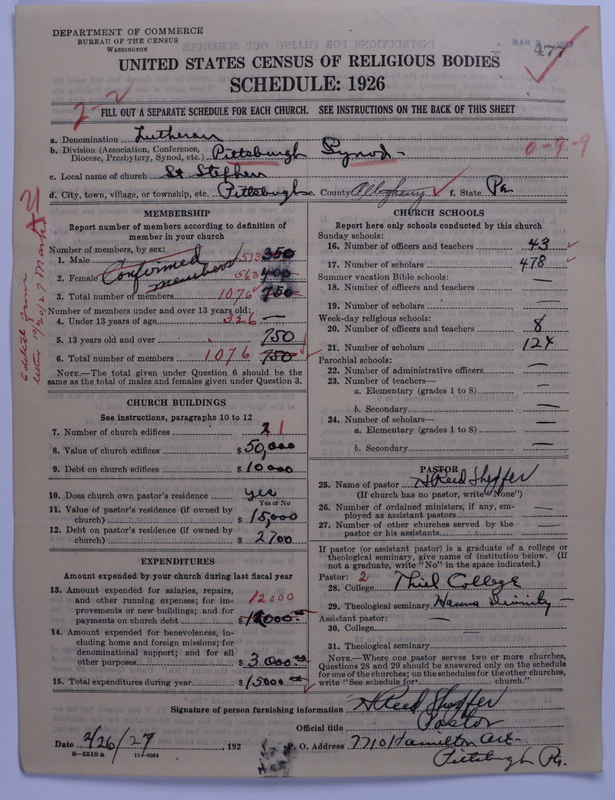 DEPARTMENT OF COMMERCE
BUREAU OF THE CENSUS
WASHINGTON
477
UNITED STATES CENSUS OF RELIGIOUS BODIES
SCHEDULE: 1926
2-2
FILL OUT A SEPARATE SCHEDULE FOR EACH CHURCH. SEE INSTRUCTIONS ON THE BACK OF THIS SHEET
a. Denomination Lutheran
b. Division (Association, Conference, Diocese, Presbytery, Synod, etc.) Pittsburgh Synod 0-9-9
c. Local name of church St Stephen
d. City, town, village, or township, etc. Pittsburgh e. County Allegheny f. State Pa.
MEMBERSHIP
Report number of members according to definition of
member in your church
Number of members, by sex:
1. Male 513 350
2. Female 563 400
Confirmed members
3. Total number of members 1076 750
Number of members under and over 13 years old:
4. Under 13 years of age 326 —
5. 13 years old and over 750
6. Total number of members 1076 750
NOTE.—The total given under Question 6 should be the
same as the total of males and females given under Question 3.
CHURCH BUILDINGS
See instructions, paragraphs 10 to 12
7. Number of church edifices 2 1
8. Value of church edifices $ 50,000
9. Debt on church edifices $ 10000
10. Does church own pastor's residence yes
Yes or No
11. Value of pastor's residence (if owned by
church) $ 15,000
12. Debt on pastor's residence (if owned by
church) $ 2700
EXPENDITURES
Amount expended by your church during last fiscal year
13. Amount expended for salaries, repairs,
and other running expenses; for im-
provements or new buildings; and for
payments on church debt 12000 $ 12000
14. Amount expended for benevolences, in-
cluding home and foreign missions; for
denominational support; and for all
other purposes $ 3000
15. Total expenditures during year $ 15000
CHURCH SCHOOLS
Report here only schools conducted by this church
Sunday schools:
16. Number of officers and teachers 43
17. Number of scholars 478
Summer vacation Bible schools:
18. Number of officers and teachers —
19. Number of scholars —
Week-day religious schools:
20. Number of officers and teachers 8
21. Number of scholars 124
Parochial schools:
22. Number of administrative officers —
23. Number of teachers—
a. Elementary (grades 1 to 8) —
b. Secondary —
24. Number of scholars—
a. Elementary (grades 1 to 8) —
b. Secondary —
PASTOR
25. Name of pastor H Reed Shepfer
(If church has no pastor, write "None")
26. Number of ordained ministers, if any, em-
ployed as assistant pastors —
27. Number of other churches served by the
pastor or his assistants —
If pastor (or assistant pastor) is a graduate of a college or
theological seminary, give name of institution below. (If
not a graduate, write "No" in the space indicated.)
Pastor: 2
28. College Thiel College
29. Theological seminary Hamma Divinity
Assistant pastor: —
30. College
31. Theological seminary
NOTE.—Where one pastor serves two or more churches,
Questions 28 and 29 should be answered only on the schedule
for one of the churches; on the schedules for the other churches,
write "See schedule for church."
Signature of person furnishing information H Reed Shepfer
Official title Pastor
Date 2/26/27, 192
P. O. Address 7710 Hamilton Ave
Pittsburgh Pa.
8-5518 a